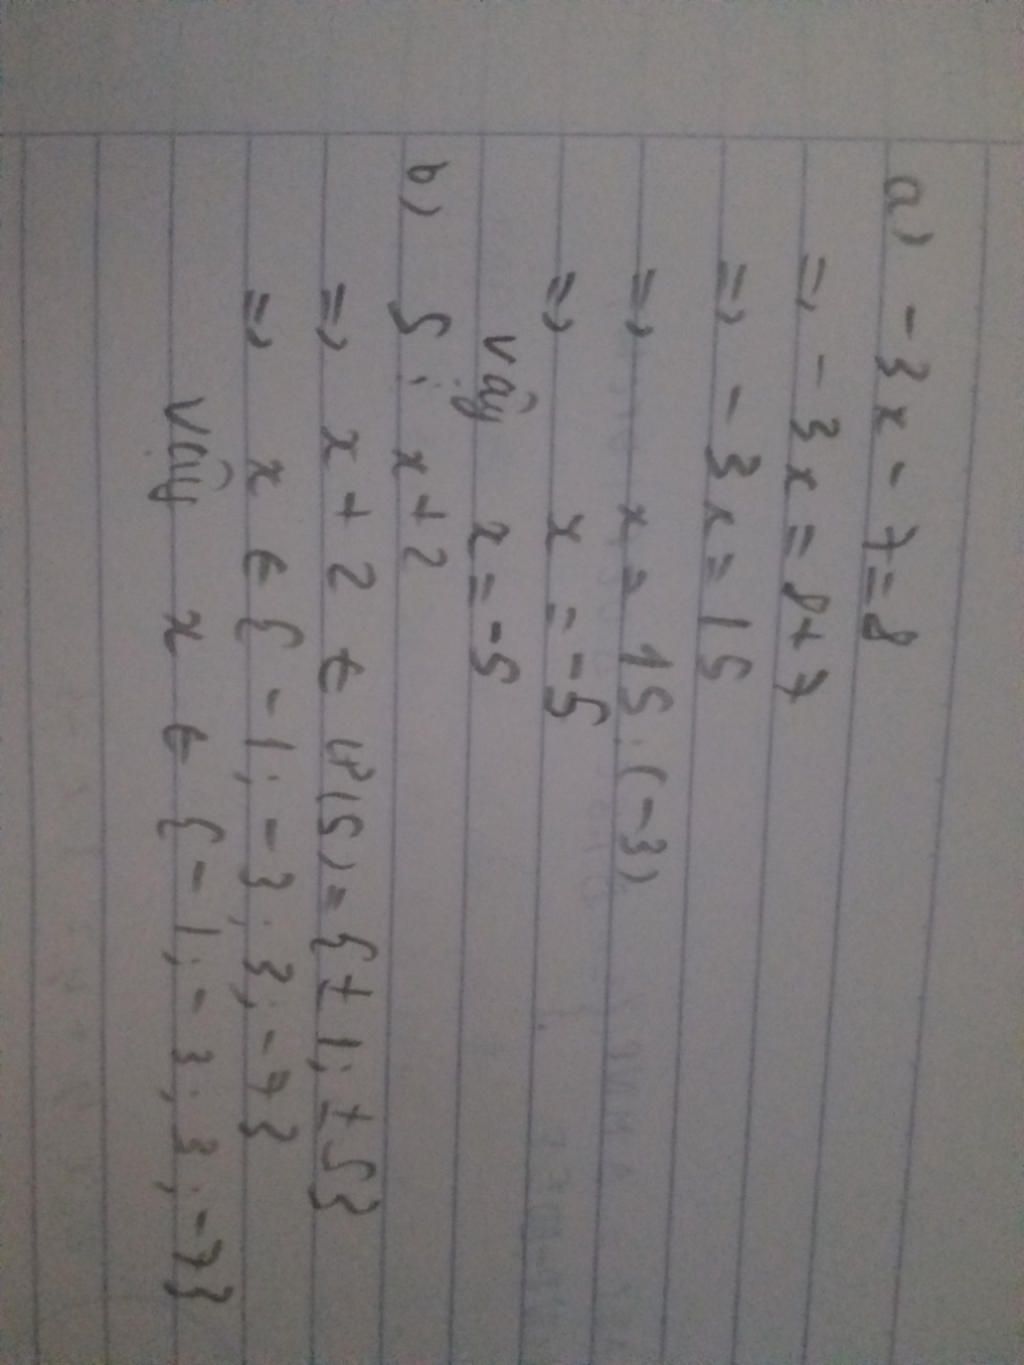 a) -3x - 7 = 8
=> -3x = 8+7
=> -3x = 15
=> x = 15 : (-3)
=> x = -5
vậy x = -5
b) 5 ⋮ x+2
=> x+2 ∈ Ư(5) = {±1; ±5}
=> x ∈ {-1; -3; 3; -7}
vậy x ∈ {-1; -3; 3; -7}